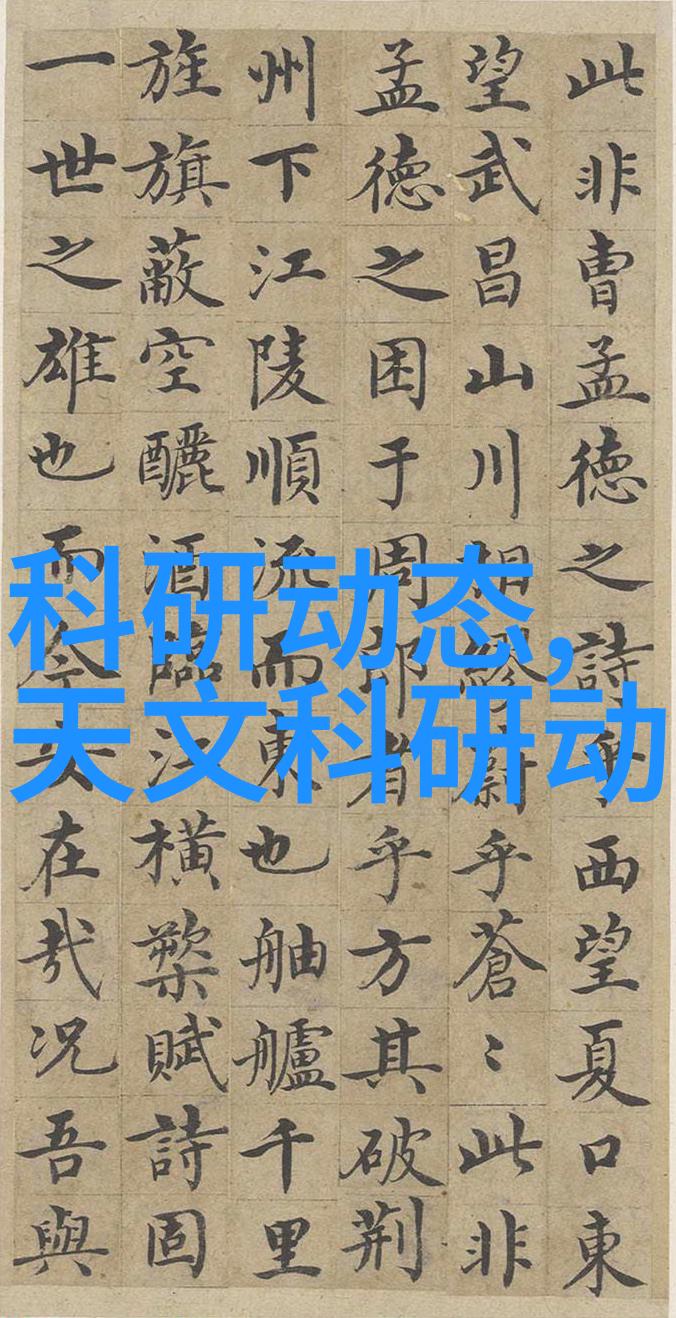 此非曹孟德之詩乎西望夏口東
望武昌山川相繆蔚乎蒼〻此非
孟德之困于周郎者乎方其破荆
州下江陵順流而東也舳艫千里
旌旗蔽空釃酒臨江横槊賦詩固
一世之雄也而今安在哉况吾與
科研动态,
天文科研动